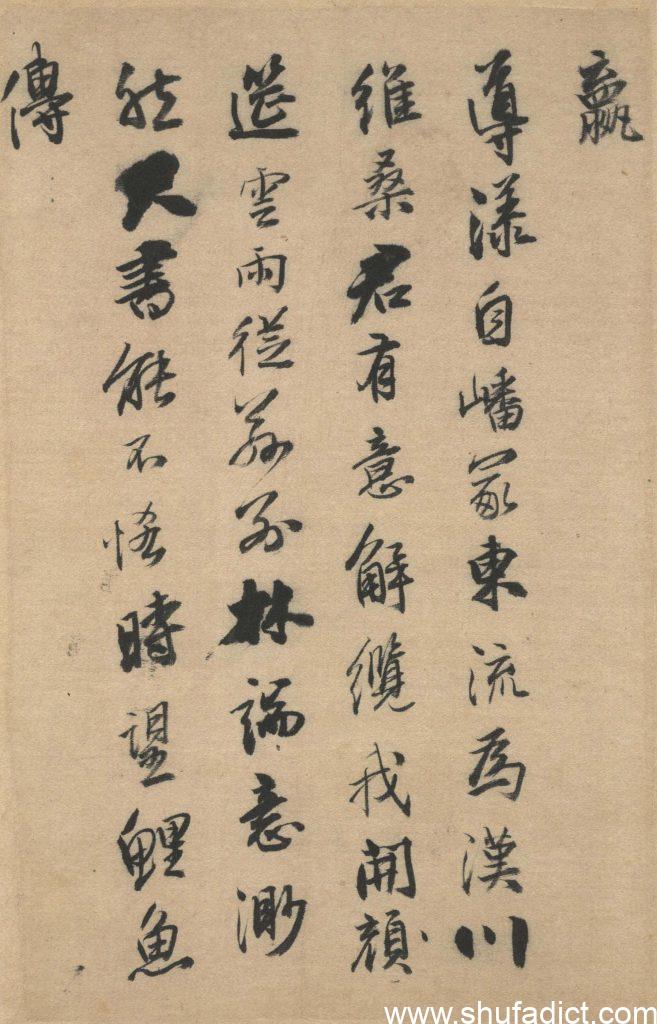 導漾自嶓冢東流為漢川
維桑君有意解纜我開顔
筵雲雨從茲別林端意渺
然尺書能不悋時望鯉魚
傳
www.shufadict.com